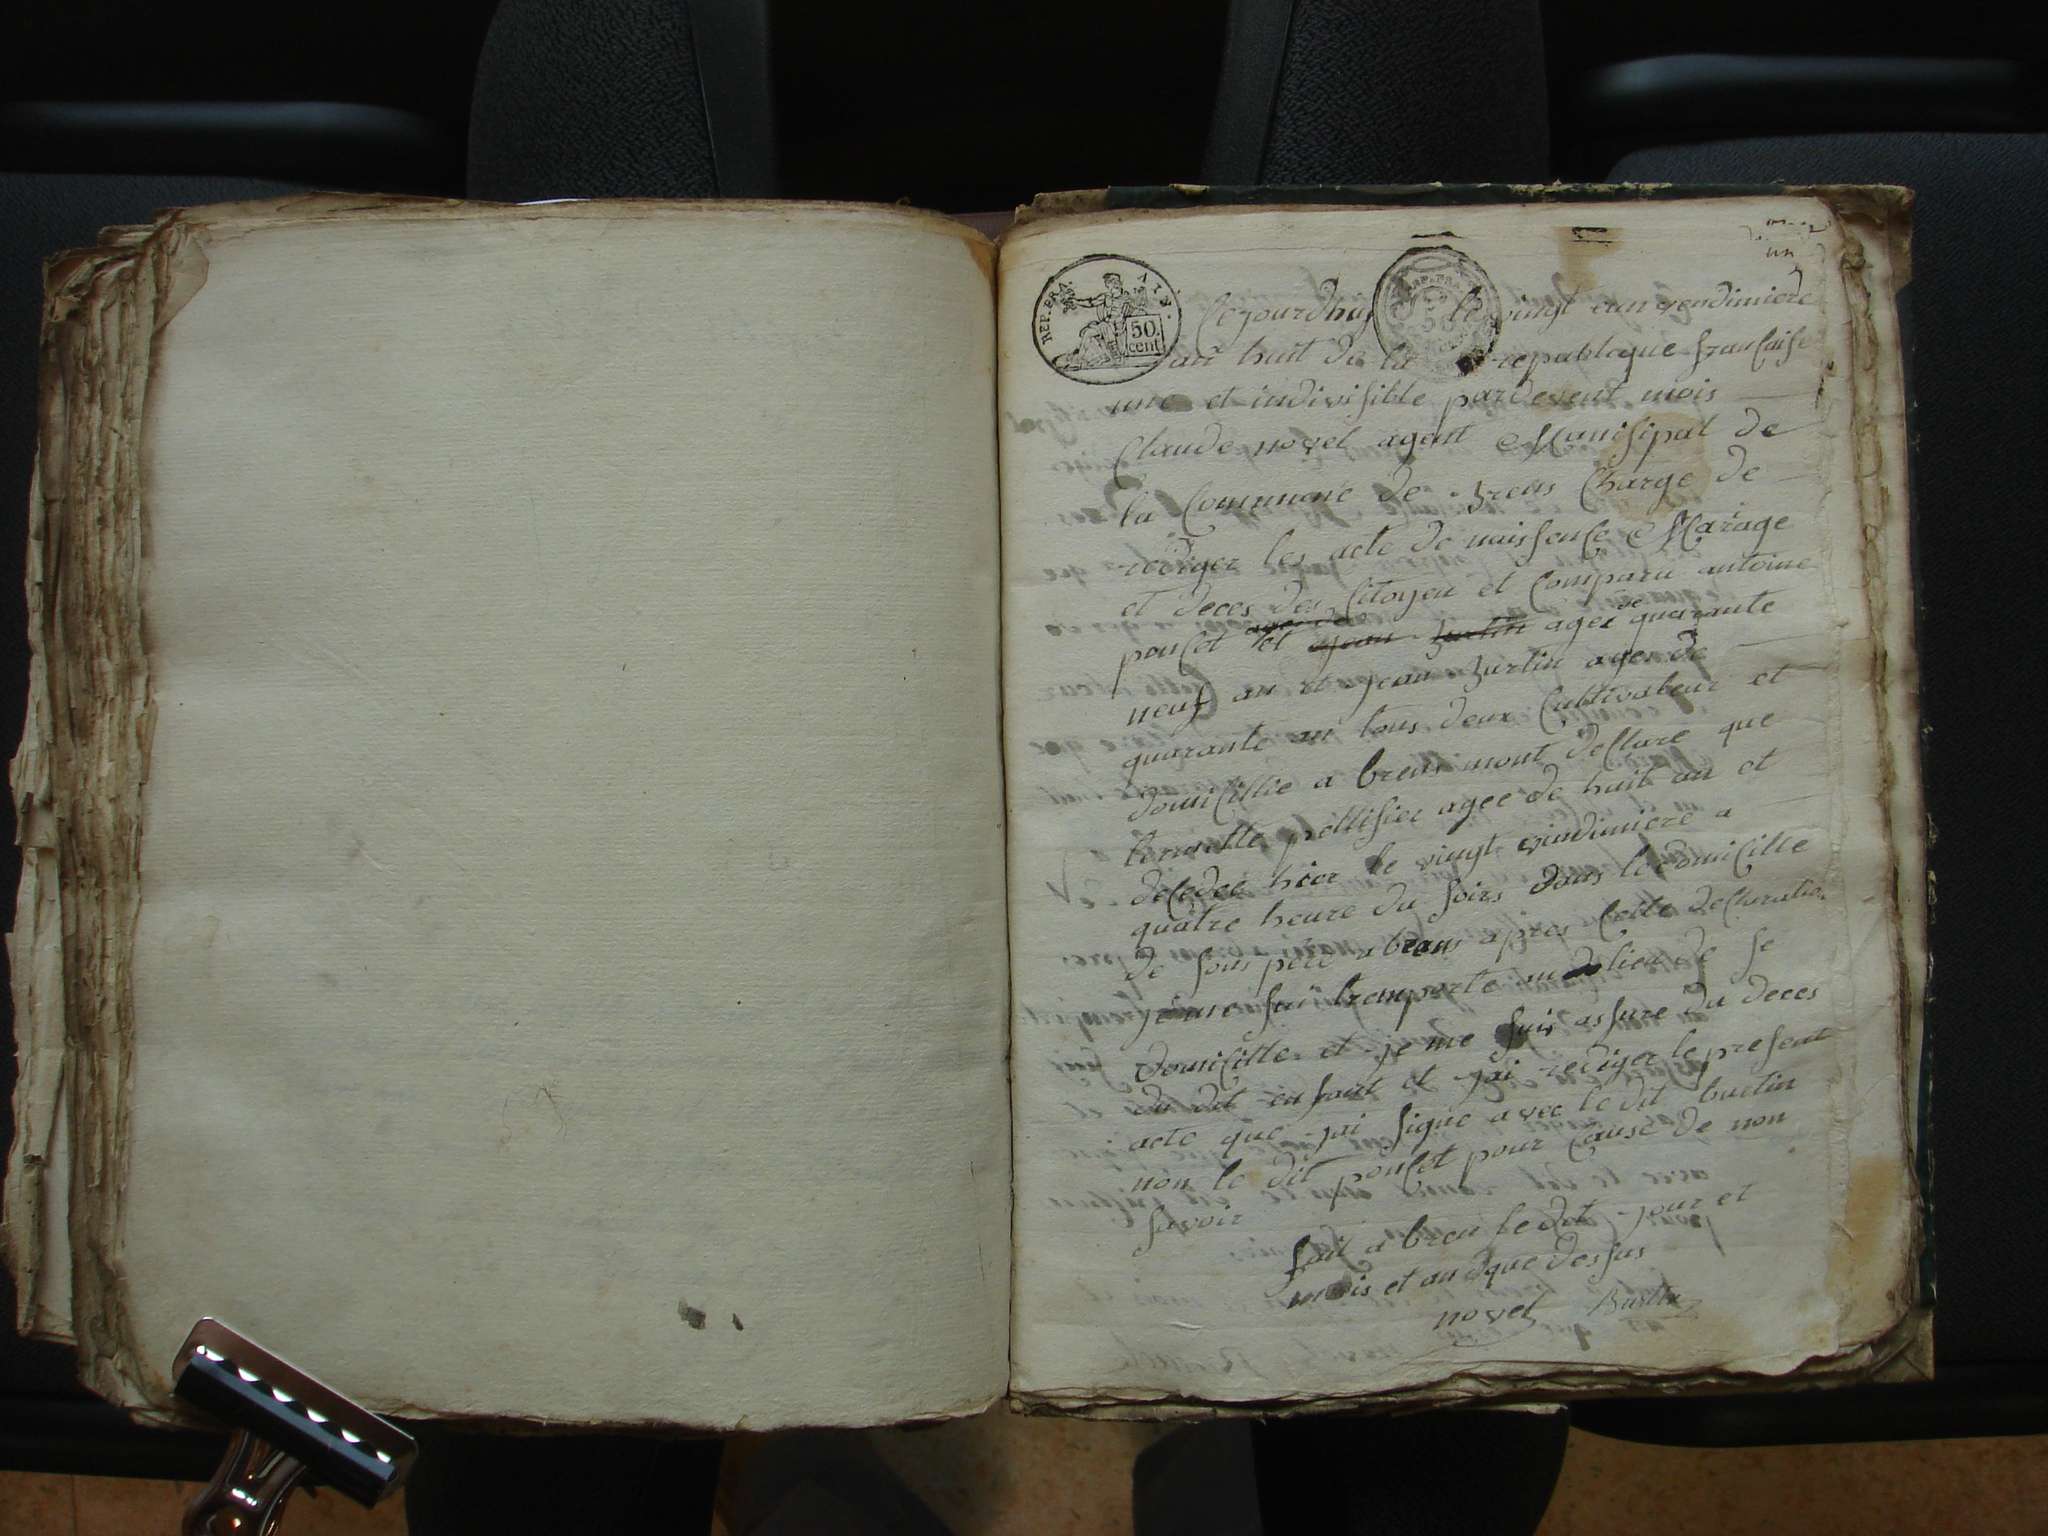 un
REP. FRA.
50.
cent.
REP. FRA
50
Cejourdhuj le vingt eun vendimiere
an huit de la republoque francaise
une et indivisible pardevent mois
Claude novel agent Munisipal de
la Commune de Brens Charge de
rediger les acte de naissence Mariage
et deces des Citoyen et Comparu antoine
poncet et Jean Burtin agee de quarante
neuf an et Jean Burtin agee de
quarante an tous deux Cultivateur et
domicillie a brens mont declare que
pellisier agee de huit an et
decedee hier le vingt vindimiere a
quatre heure du soirs dans le domicille
de sons pere a brens apres Cette declaration
je me suis tremporte au lieu de se
domicille et je me suis assure du deces
du dit enfant et jai rediger le present
acte que jai signe avec le dit burtin
non le dit poncet pour Cause de non
savoir
fait a bren le dit jour et
mois et an que dessus
novel Burtin